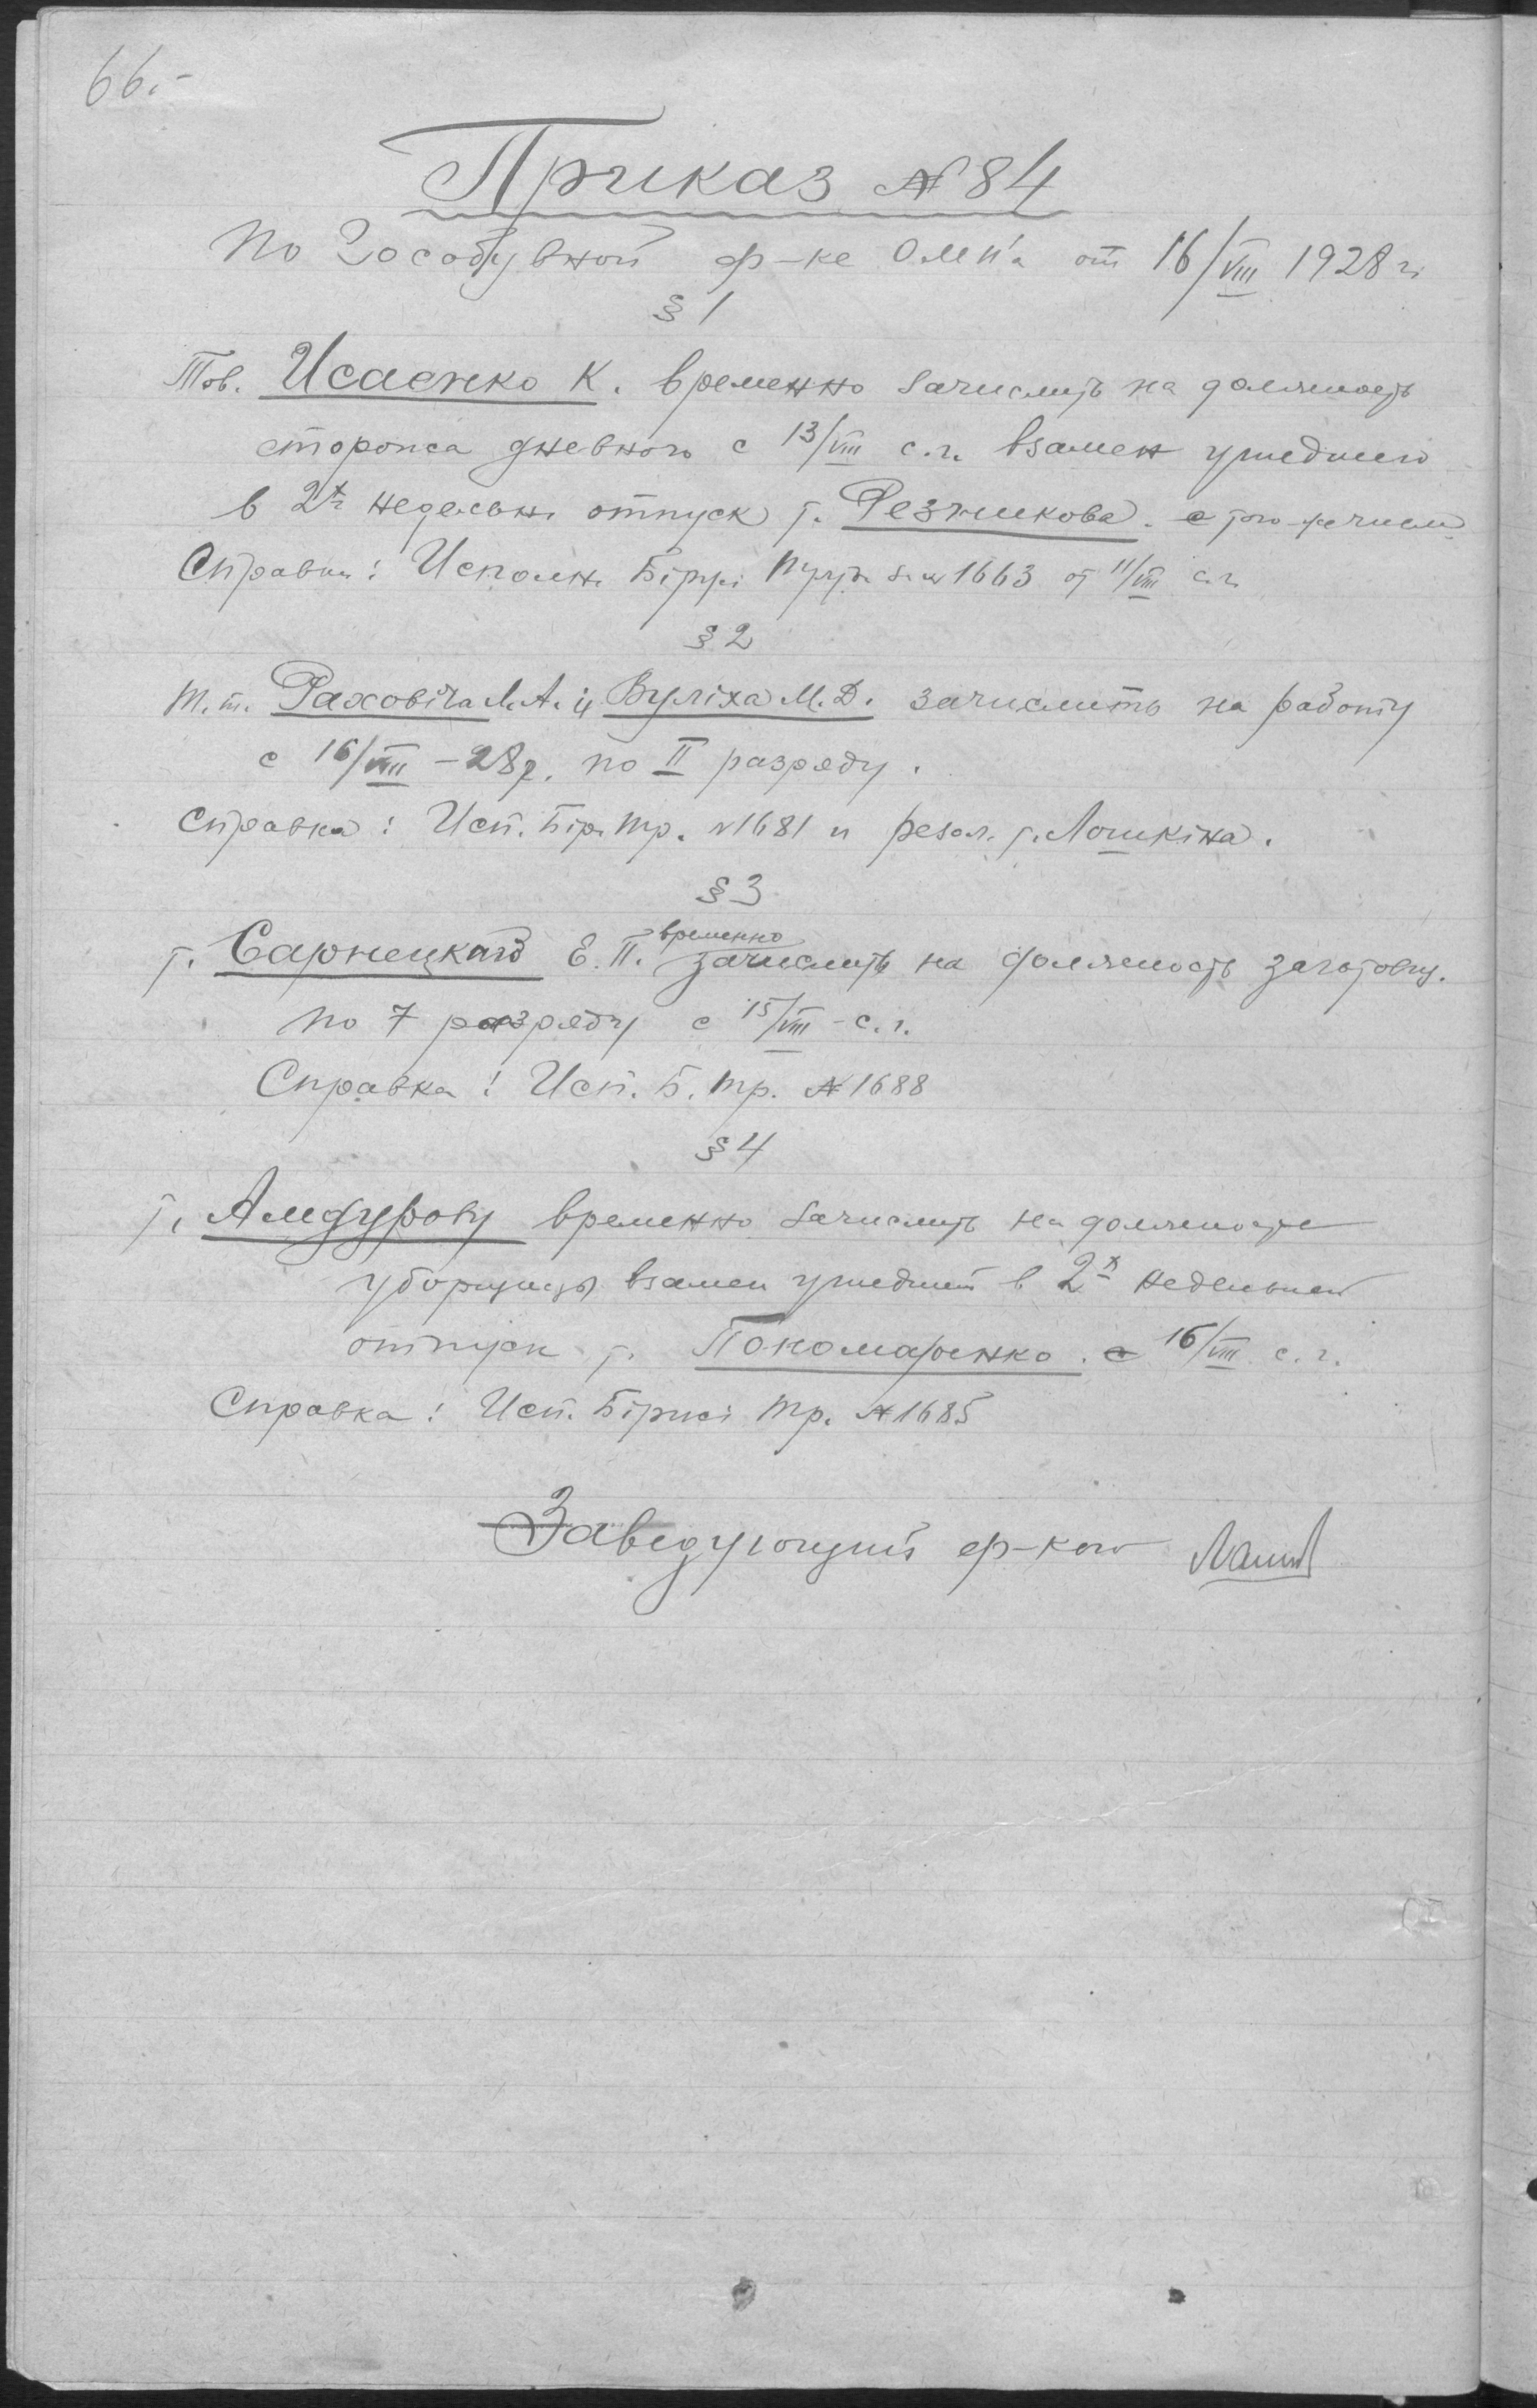 66.-
Приказ № 84
по Гособувной ф-ке ОМП'а от 16/VIII 1928 г.
§ 1
Тов. Исаенко К. временно зачислить на должность
сторожа дневного с 13/VIII с.г. взамен ушедшего
в 2х недельн. отпуск т. Резникова. с того же числа
Справка: Исполн. Біржі Праці за № 1663 от 11/VIII с.г.
§ 2
т.т. Раховіча Л.А. и Вуліха М.Д. зачислить на работу
с 16/VIII - 28 р. по II разряду.
Справка: Исп. Бір. Тр. № 1681 и резол. т. Лошкіна.
§ 3
временно
т. Сарнецкаго Е.П. зачислить на должность заготовщ.
по 7 разряду с 15/VIII - с.г.
Справка: Исп. Б. Тр. № 1688
§ 4
т. Амдурову временно зачислить на должность
уборщицы взамен ушедшей в 2х недельный
отпуск т. Пономаренко. с 16/VIII с.г.
Справка: Исп. Біржі Тр. № 1685
Заведующий ф-кой